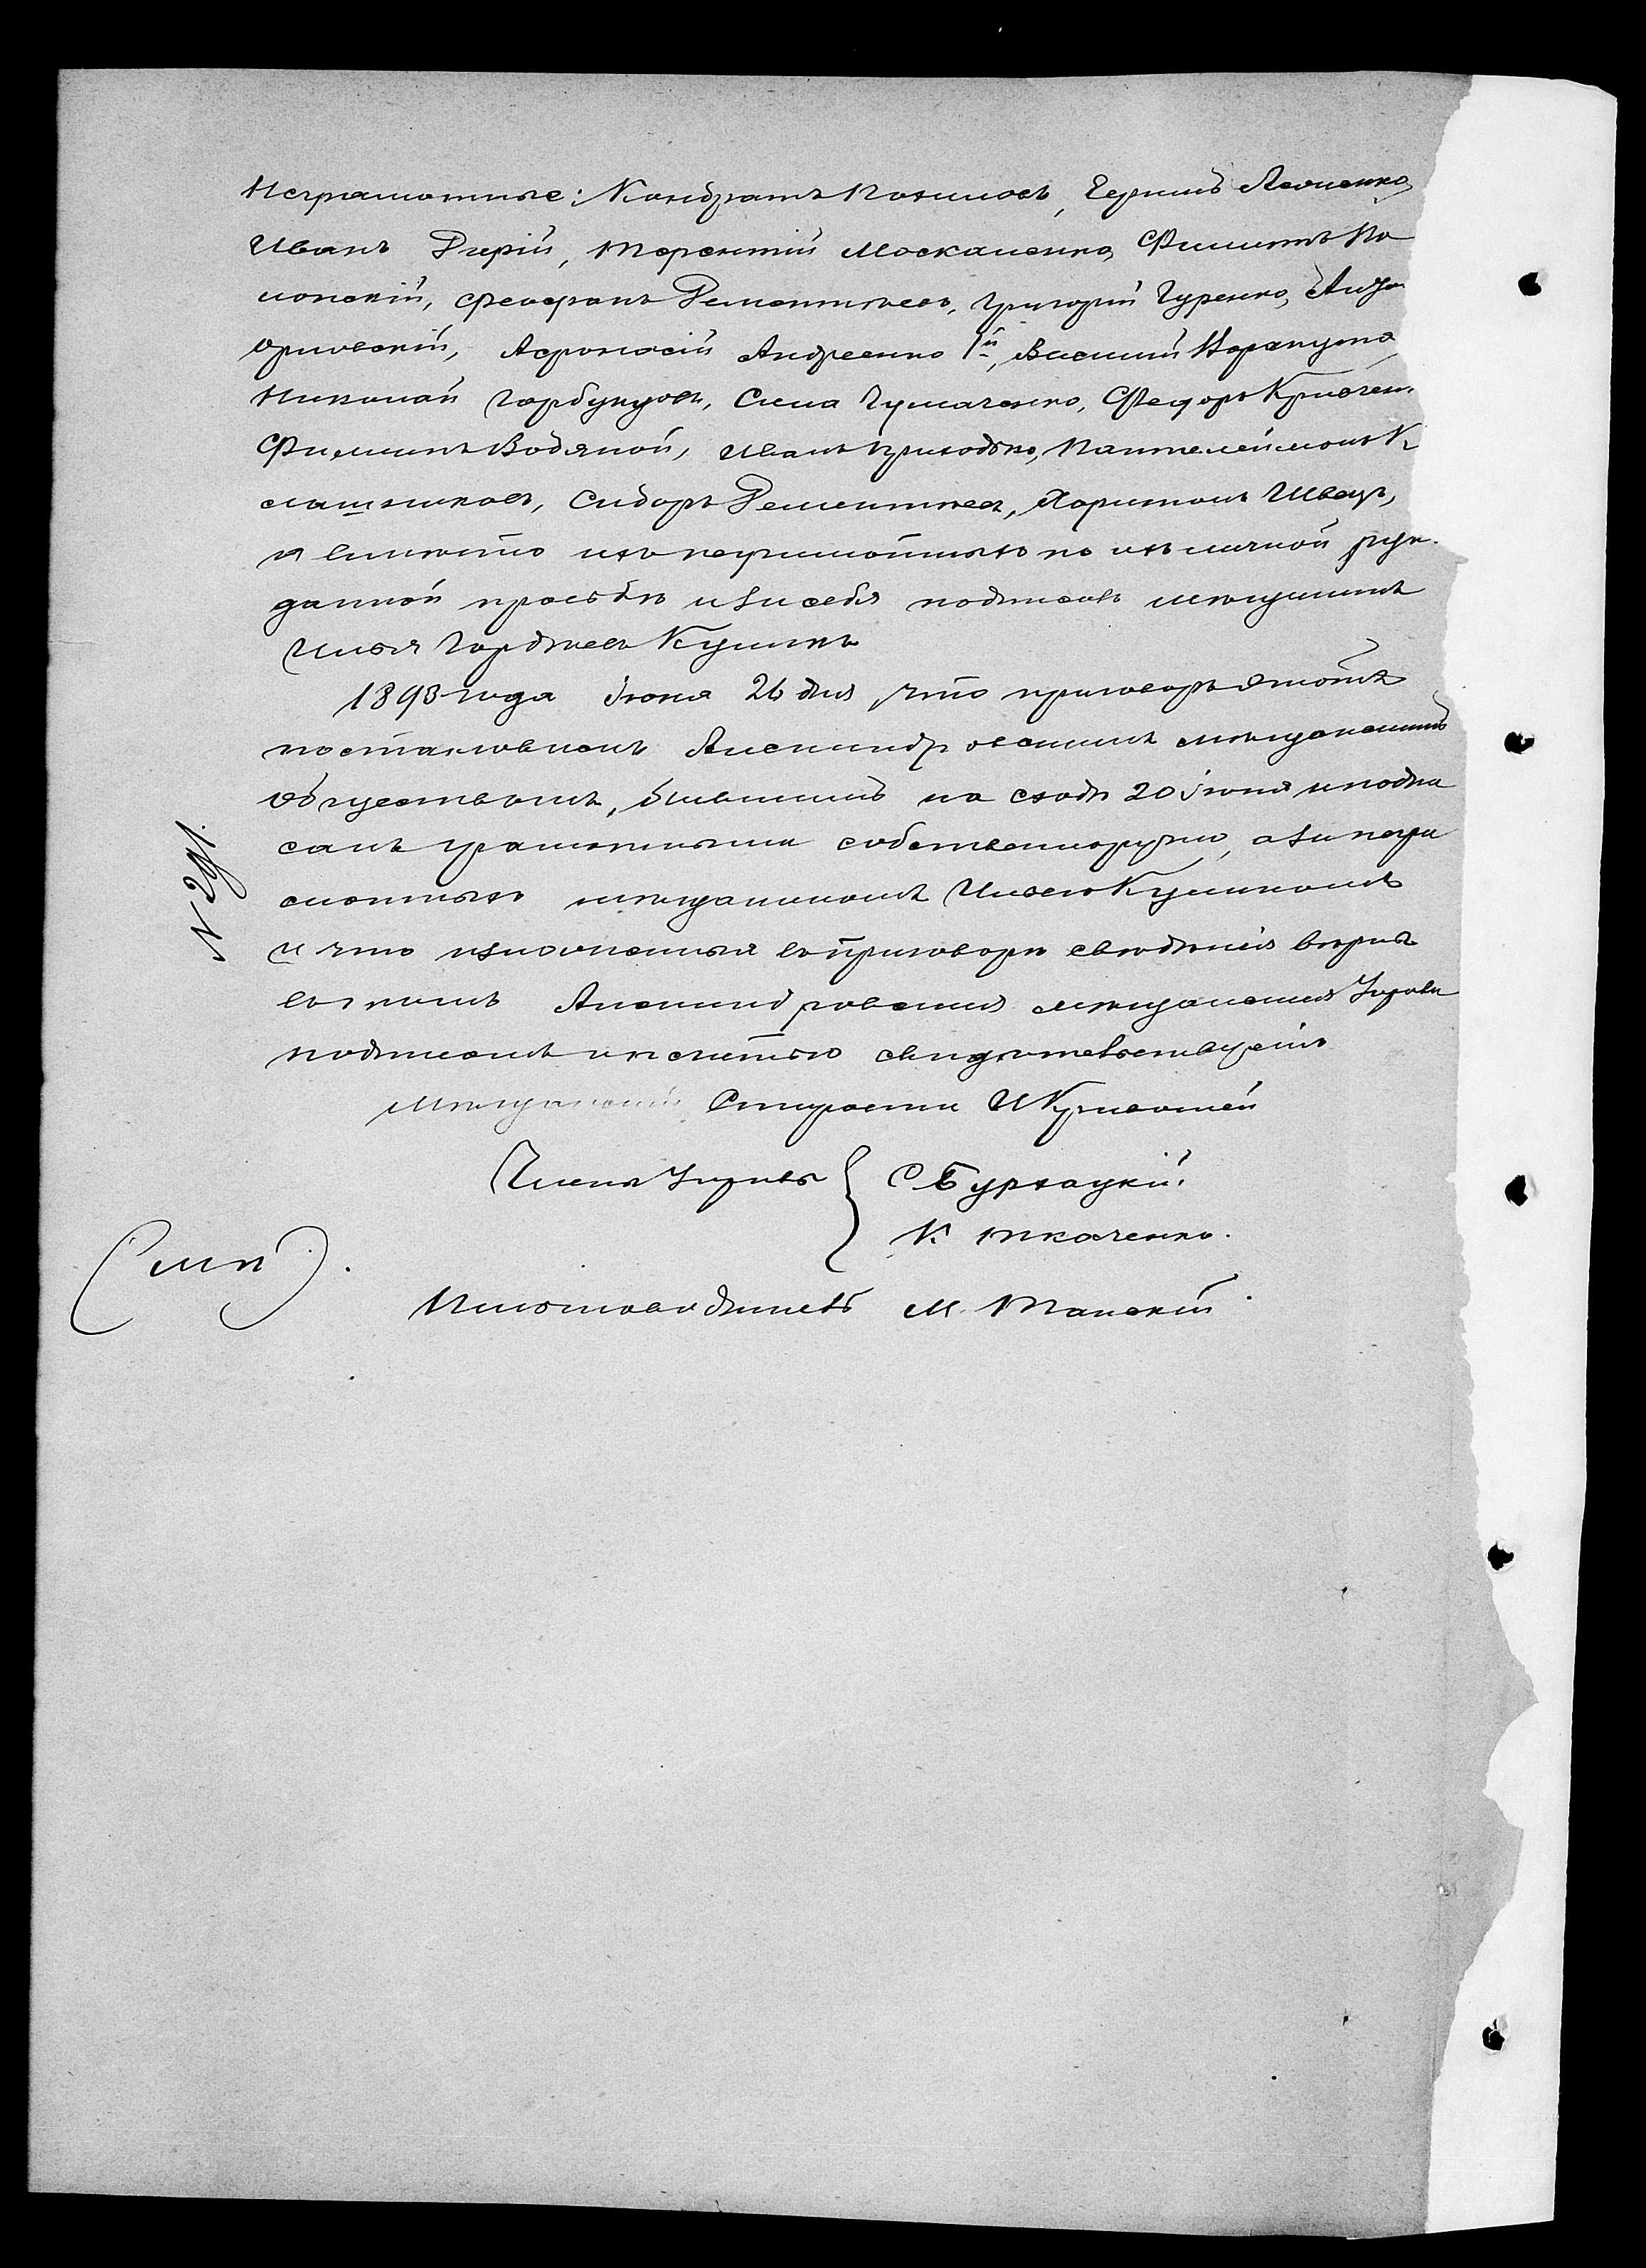 Неграмотные: Кондратъ Потиловъ, Ефимъ Леоненко,
Иванъ Гирій, Терентій Москаленко, Филиппъ По
лонскій, Феофанъ Рементьевъ, Григорій Гуренко,
орловскій, Афонасій Андреенко 1й, Василій
Николай Горбунцовъ, Сила Чумаченко, Федоръ Крючен
Филиппъ Водяной, Иванъ Приходько, Пантелеймонъ К
лашниковъ, Сидоръ Рементьевъ, Харитонъ Швецъ,
а вмѣсто ихъ неграмотныхъ по ихъ личной рук
данной просьбѣ и за себя подписалъ мѣщанинъ
Илья Гордѣевъ Куликъ
1893 года Іюня 26 дня, что приговоръ этотъ
постановленъ Александровскимъ мѣщанскимъ
обществомъ, бывшимъ на сходѣ 20 іюня и подпи
санъ грамотными собственноручно, а за негра
мотныхъ мѣщаниномъ Ильею Куликомъ
и что изложенныя въ приговорѣ свѣдѣнія вѣрны
въ томъ Александровская мѣщанская Управа
подписомъ и печатью свидѣтельствуетъ
Мѣщанскій Староста И Кривошей
Члены Управы { С Бурхацкій.
К. Ткаченко.
(мп).
Письмоводитель М. Танскій.
N 291.